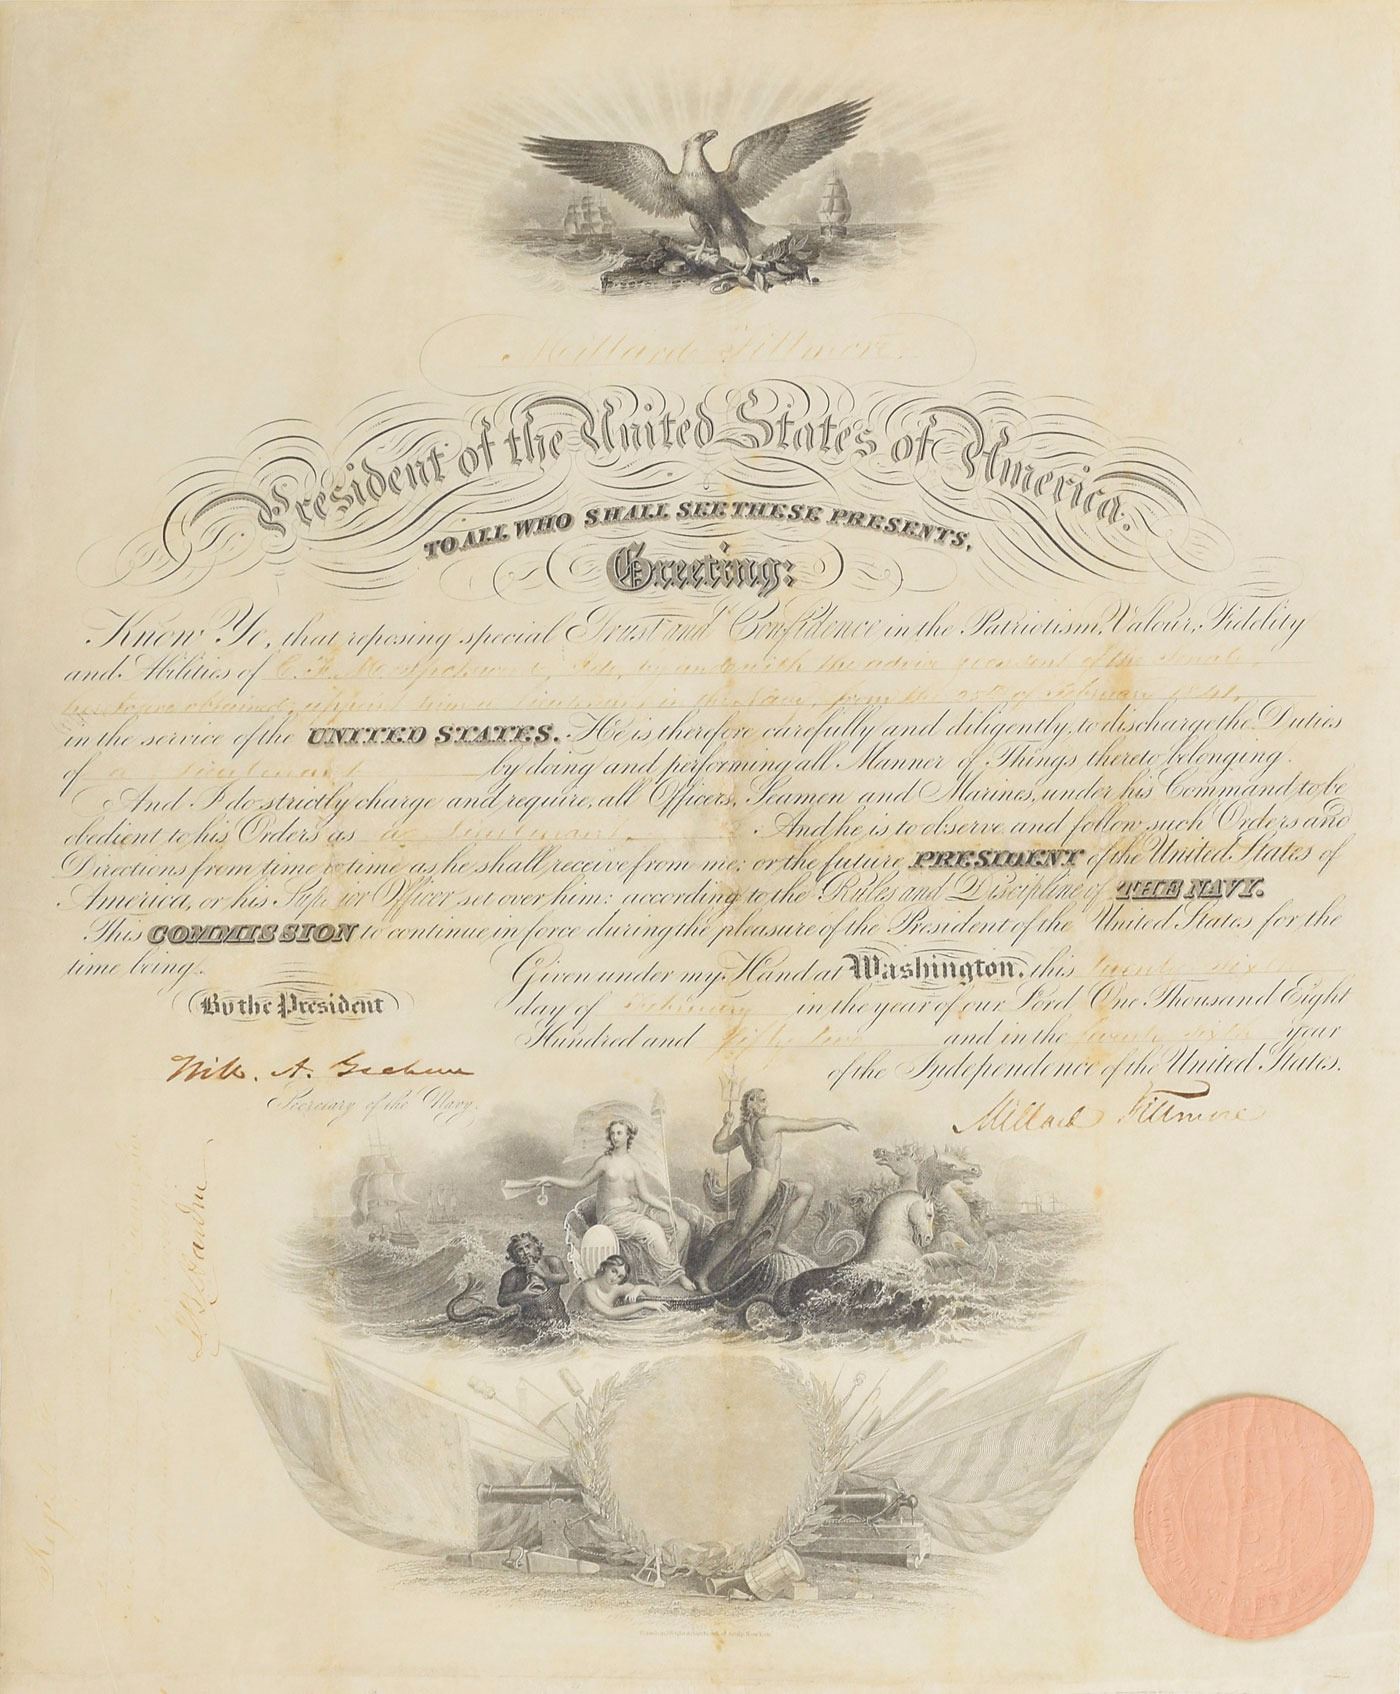 Millard Fillmore
President of the United States of America.
TO ALL WHO SHALL SEE THESE PRESENTS,
Greeting:
Know Ye, that reposing special Trust and Confidence in the Patriotism, Valour, Fidelity
and Abilities of by and with the advice consent of the Senate,
appoint him a Lieutenant in the Navy, from the 25th of February
in the service of the UNITED STATES. He is therefore carefully and diligently, to discharge the Duties
of a Lieutenant by doing and performing all Manner of Things thereto belonging.
And I do strictly charge and require, all Officers, Seamen and Marines, under his Command, to be
obedient to his Orders as a Lieutenant. And he is to observe and follow such Orders and
Directions from time to time as he shall receive from me: or the future PRESIDENT of the United States of
America, or his Superior Officer set over him: according to the Rules and Discipline of THE NAVY.
This COMMISSION to continue in force during the pleasure of the President of the United States for the
time being.
Given under my Hand at Washington, this twenty sixth
By the President
day of February in the year of our Lord One Thousand Eight
Hundred and fifty two and in the seventy sixth year
of the Independence of the United States.
Will. A. Graham
Secretary of the Navy.
Millard Fillmore